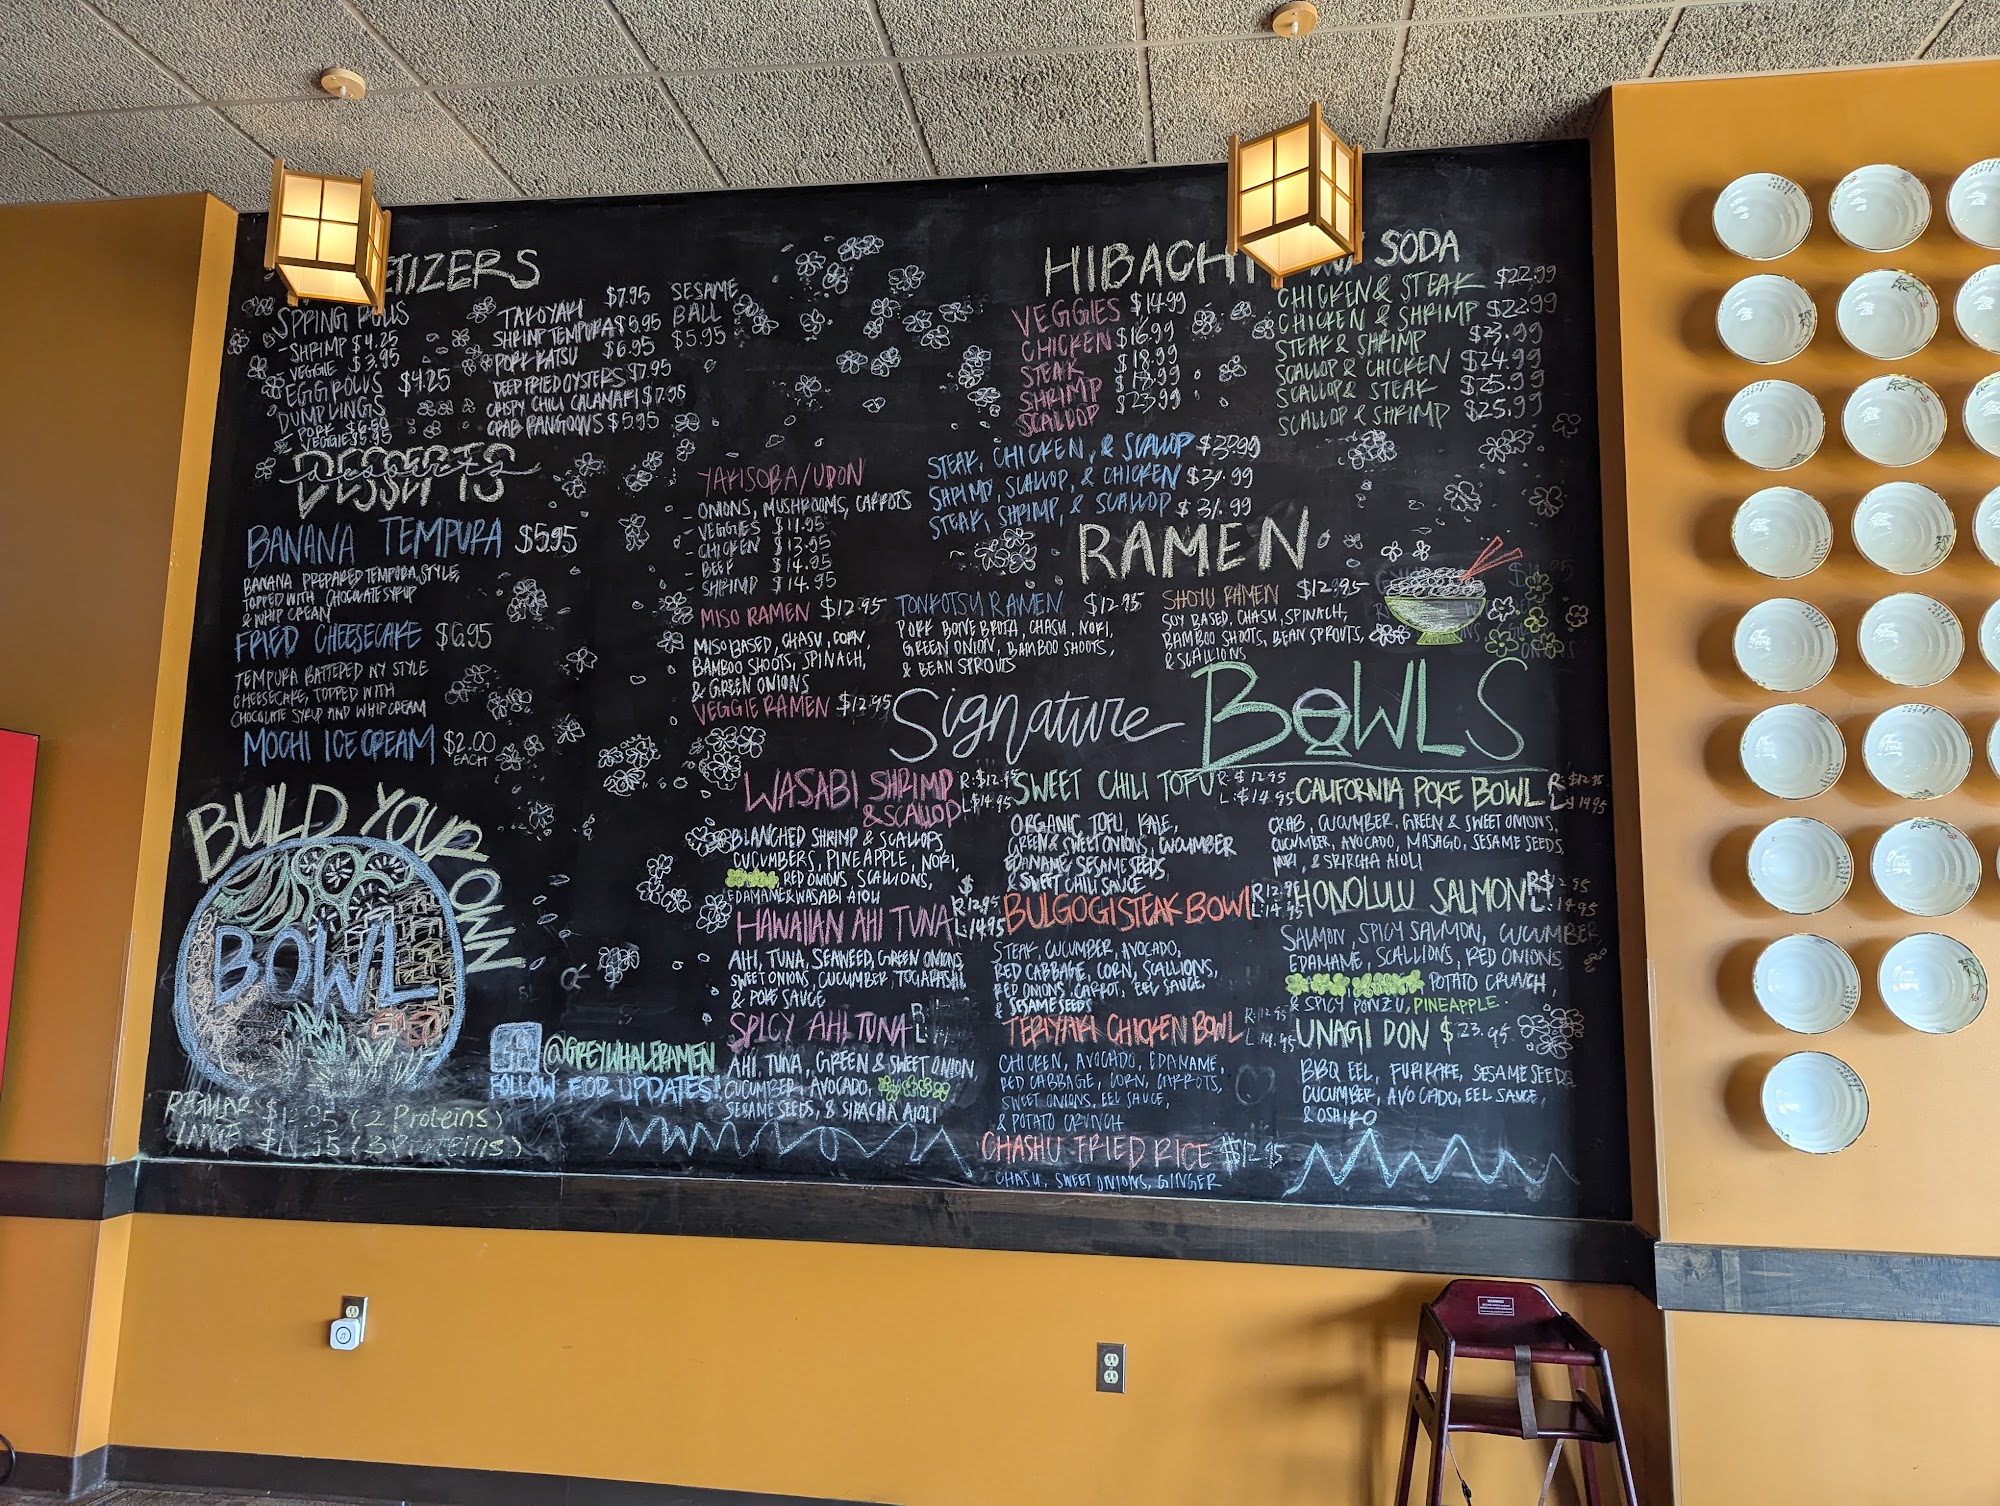 SPRING ROLLS
- SHRIMP $4.25
VEGGIE $3.95
EGG ROLLS $4.25
DUMPLINGS
- PORK $6.50
VEGGIE $5.95
TAKOYAKI $7.95
SHRIMP TEMPURA $5.95
PORK KATSU $6.95
DEEP FRIED OYSTERS $7.95
CRISPY CHILI CALAMARI $7.95
CRAB RANGOONS $5.95
SESAME
BALL
$5.95
DESSERTS
BANANA TEMPURA $5.95
BANANA PREPARED TEMPURA STYLE,
TOPPED WITH CHOCOLATE SYRUP
& WHIP CREAM
FRIED CHEESECAKE $6.95
TEMPURA BATTERED NY STYLE
CHEESECAKE, TOPPED WITH
CHOCOLATE SYRUP AND WHIP CREAM
MOCHI ICE CREAM $2.00
EACH
BUILD YOUR OWN
BOWL
REGULAR $12.95 (2 Proteins)
LARGE $14.95 (3 Proteins)
@GREYWHALERAMEN
FOLLOW FOR UPDATES!
HIBACHI
SODA
VEGGIES $14.99
CHICKEN $16.99
STEAK $18.99
SHRIMP
SCALLOP $23.99
CHICKEN & STEAK $22.99
CHICKEN & SHRIMP $22.99
STEAK & SHRIMP
SCALLOP & CHICKEN $24.99
SCALLOP & STEAK $25.99
SCALLOP & SHRIMP $25.99
STEAK, CHICKEN, & SCALLOP
SHRIMP, SCALLOP, & CHICKEN $31.99
STEAK, SHRIMP, & SCALLOP $31.99
YAKISOBA/UDON
- ONIONS, MUSHROOMS, CARROTS
- VEGGIES $11.95
- CHICKEN $13.95
- BEEF $14.95
- SHRIMP $14.95
RAMEN
MISO RAMEN $12.95
MISO BASED, CHASU, CORN,
BAMBOO SHOOTS, SPINACH,
& GREEN ONIONS
VEGGIE RAMEN $12.95
TONKOTSU RAMEN $12.95
PORK BONE BROTH, CHASU, NORI,
GREEN ONION, BAMBOO SHOOTS,
& BEAN SPROUTS
SHOYU RAMEN $12.95
SOY BASED, CHASU, SPINACH,
BAMBOO SHOOTS, BEAN SPROUTS,
& SCALLIONS
Signature BOWLS
WASABI SHRIMP
& SCALLOP
R: $12.95
L: $14.95
BLANCHED SHRIMP & SCALLOPS,
CUCUMBERS, PINEAPPLE, NORI,
RED ONIONS, SCALLIONS,
EDAMAME & WASABI AIOLI
HAWAIIAN AHI TUNA
R 12.95
L: 14.95
AHI, TUNA, SEAWEED, GREEN ONIONS,
SWEET ONIONS, CUCUMBER, TOGARASHI,
& POKE SAUCE
SPICY AHI TUNA R
L:
AHI TUNA, GREEN & SWEET ONION,
CUCUMBER, AVOCADO,
SESAME SEEDS, & SIRACHA AIOLI
SWEET CHILI TOFU R: $12.95
L: $14.95
ORGANIC TOFU, KALE,
GREEN & SWEET ONIONS, CUCUMBER
EDAMAME, SESAME SEEDS
& SWEET CHILI SAUCE
BULGOGI STEAK BOWL R: 12.95
L: 14.95
STEAK, CUCUMBER, AVOCADO,
RED CABBAGE, CORN, SCALLIONS,
RED ONIONS, CARROT, EEL SAUCE,
& SESAME SEEDS
TERIYAKI CHICKEN BOWL R: 12.95
L: 14.95
CHICKEN, AVOCADO, EDAMAME,
RED CABBAGE, CORN, CARROTS,
SWEET ONIONS, EEL SAUCE,
& POTATO CRUNCH
CHASHU FRIED RICE $12.95
CHASU, SWEET ONIONS, GINGER
CALIFORNIA POKE BOWL R: $12.95
L: $14.95
CRAB, CUCUMBER, GREEN & SWEET ONIONS,
CUCUMBER, AVOCADO, MASAGO, SESAME SEEDS,
NORI, & SRIRCHA AIOLI
HONOLULU SALMON R $12.95
L: 14.95
SALMON, SPICY SALMON, CUCUMBER
EDAMAME, SCALLIONS, RED ONIONS,
POTATO CRUNCH,
& SPICY PONZU, PINEAPPLE.
UNAGI DON $23.95
BBQ EEL, FURIKAKE, SESAME SEEDS,
CUCUMBER, AVOCADO, EEL SAUCE,
& OSHIKO
WARNING